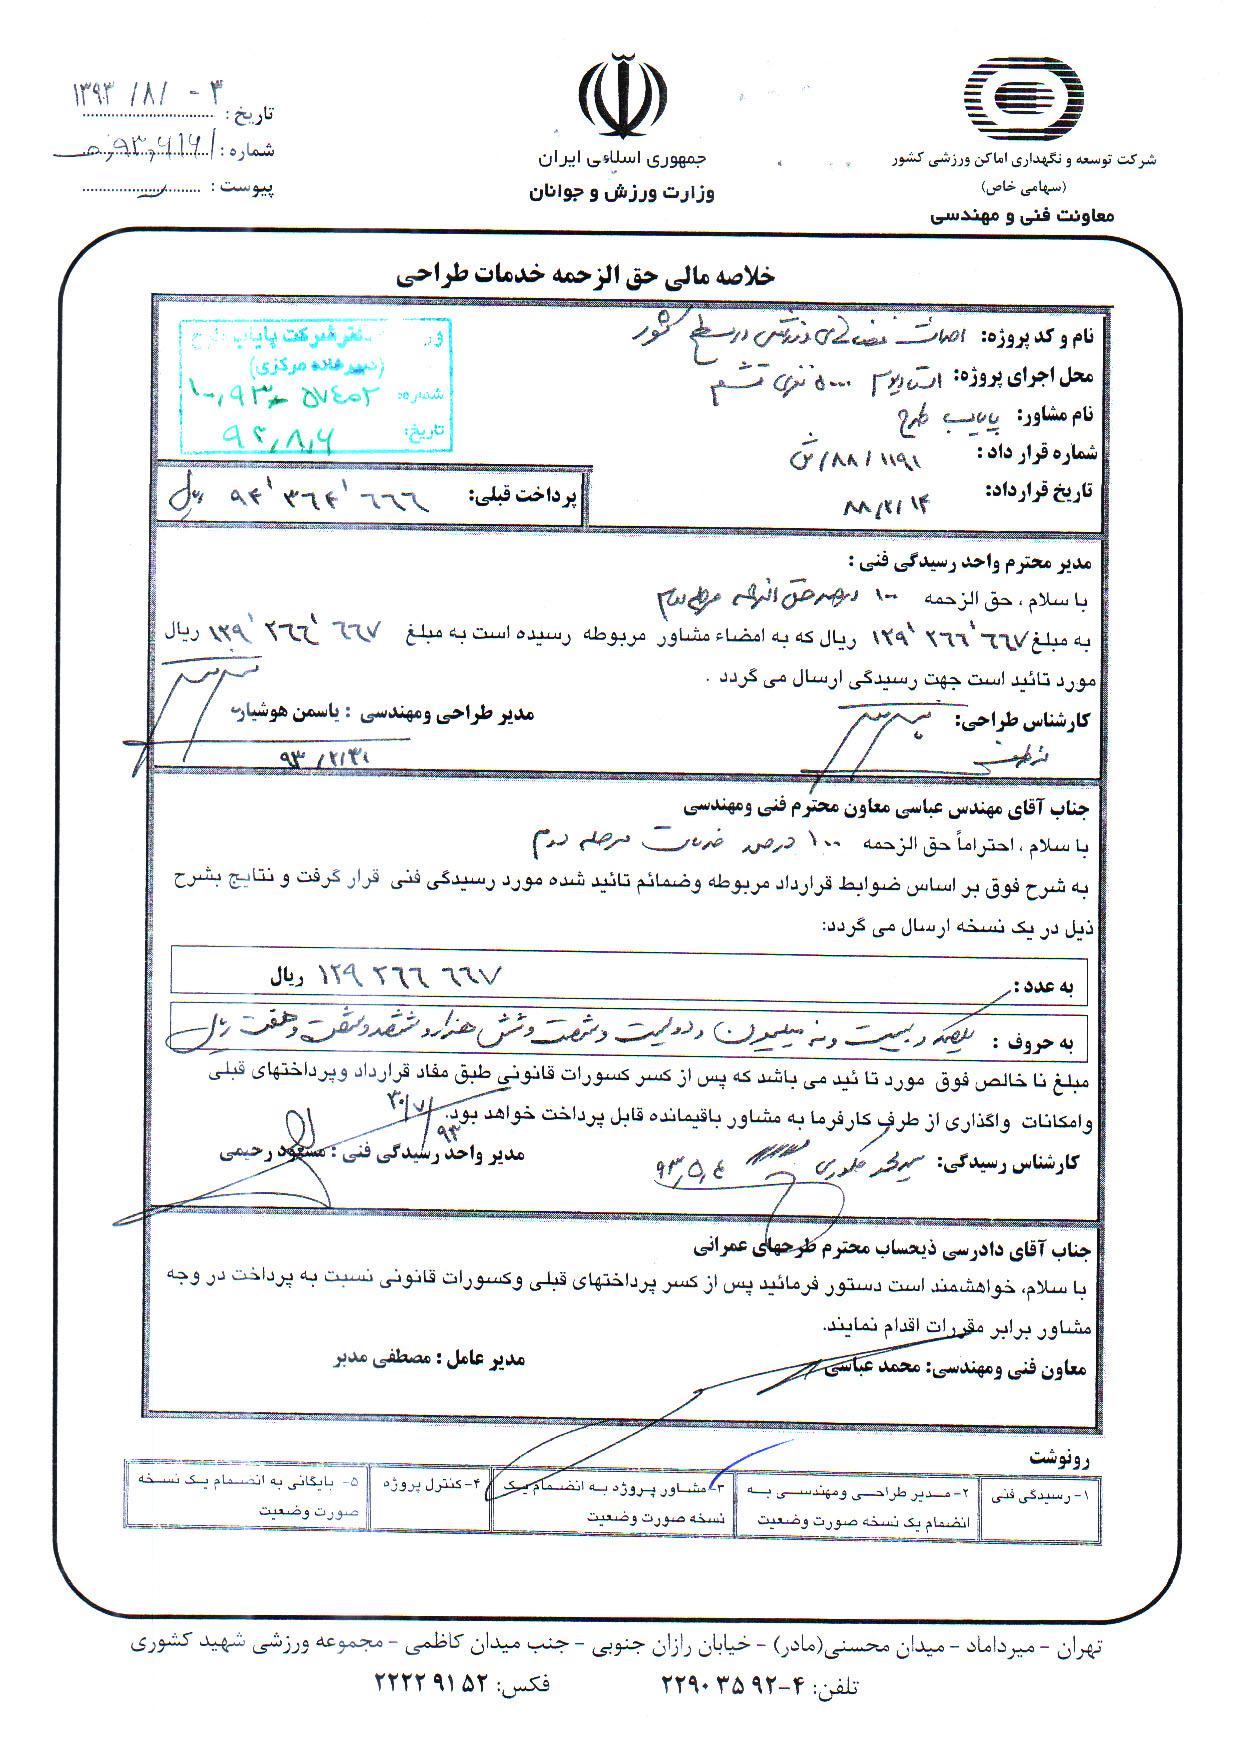 شرکت توسعه و نگهداری اماکن ورزشی کشور
(سهامی خاص)
معاونت فنی و مهندسی
جمهوری اسلامی ایران
وزارت ورزش و جوانان
تاریخ: ۱۳۹۳/۸/۰۳
شماره:
پیوست:
خلاصه مالی حق الزحمه خدمات طراحی
دفتر شرکت پایاب طرح
(دبیرخانه مرکزی)
شماره: ۱۰,۹۳,۵۷۴۰۲
تاریخ: ۹۳,۸,۶
نام و کد پروژه: احداث فضاهای ورزشی در سطح کشور
محل اجرای پروژه: استادیوم ۵۰۰۰ نفری قشم
نام مشاور: پایاب طرح
شماره قرار داد: ۱۱۹۱/۸۸/ش
تاریخ قرارداد: ۸۸/۲/۱۴
پرداخت قبلی: ۹۴٬۳۶۴٬۶۶۶ ریال
مدیر محترم واحد رسیدگی فنی :
با سلام ، حق الزحمه ۱۰۰ درصد حق الزحمه مرحله دوم
به مبلغ ۱۲۹٬۲۶۶٬۶۶۷ ریال که به امضاء مشاور مربوطه رسیده است به مبلغ ۱۲۹٬۲۶۶٬۶۶۷ ریال
مورد تائید است جهت رسیدگی ارسال می گردد .
کارشناس طراحی:
مدیر طراحی ومهندسی : یاسمن هوشیار
۹۳/۲/۳۱
جناب آقای مهندس عباسی معاون محترم فنی ومهندسی
با سلام ، احتراماً حق الزحمه ۱۰۰ درصد خدمات مرحله دوم
به شرح فوق بر اساس ضوابط قرارداد مربوطه وضمائم تائید شده مورد رسیدگی فنی قرار گرفت و نتایج بشرح
ذیل در یک نسخه ارسال می گردد:
به عدد : ۱۲۹ ۲۶۶ ۶۶۷ ریال
به حروف : یکصد و بیست و نه میلیون و دویست و شصت و شش هزار و ششصد و شصت و هفت ریال
مبلغ نا خالص فوق مورد تا ئید می باشد که پس از کسر کسورات قانونی طبق مفاد قرارداد وپرداختهای قبلی
وامکانات واگذاری از طرف کارفرما به مشاور باقیمانده قابل پرداخت خواهد بود.
۹۳/۷/۳۰
کارشناس رسیدگی: ۹۳,۵,۴
مدیر واحد رسیدگی فنی : مسعود رحیمی
جناب آقای دادرسی ذیحساب محترم طرحهای عمرانی
با سلام، خواهشمند است دستور فرمائید پس از کسر پرداختهای قبلی وکسورات قانونی نسبت به پرداخت در وجه
مشاور برابر مقررات اقدام نمایند.
معاون فنی ومهندسی: محمد عباسی
مدیر عامل : مصطفی مدبر
رونوشت
۱- رسیدگی فنی
۲- مدیر طراحی ومهندسی به
انضمام یک نسخه صورت وضعیت
۳- مشاور پروژه به انضمام یک
نسخه صورت وضعیت
۴- کنترل پروژه
۵- بایگانی به انضمام یک نسخه
صورت وضعیت
تهران - میرداماد - میدان محسنی(مادر) - خیابان رازان جنوبی - جنب میدان کاظمی - مجموعه ورزشی شهید کشوری
تلفن: ۴-۲۲۹۰۳۵۹۲ فکس: ۲۲۲۲۹۱۵۲